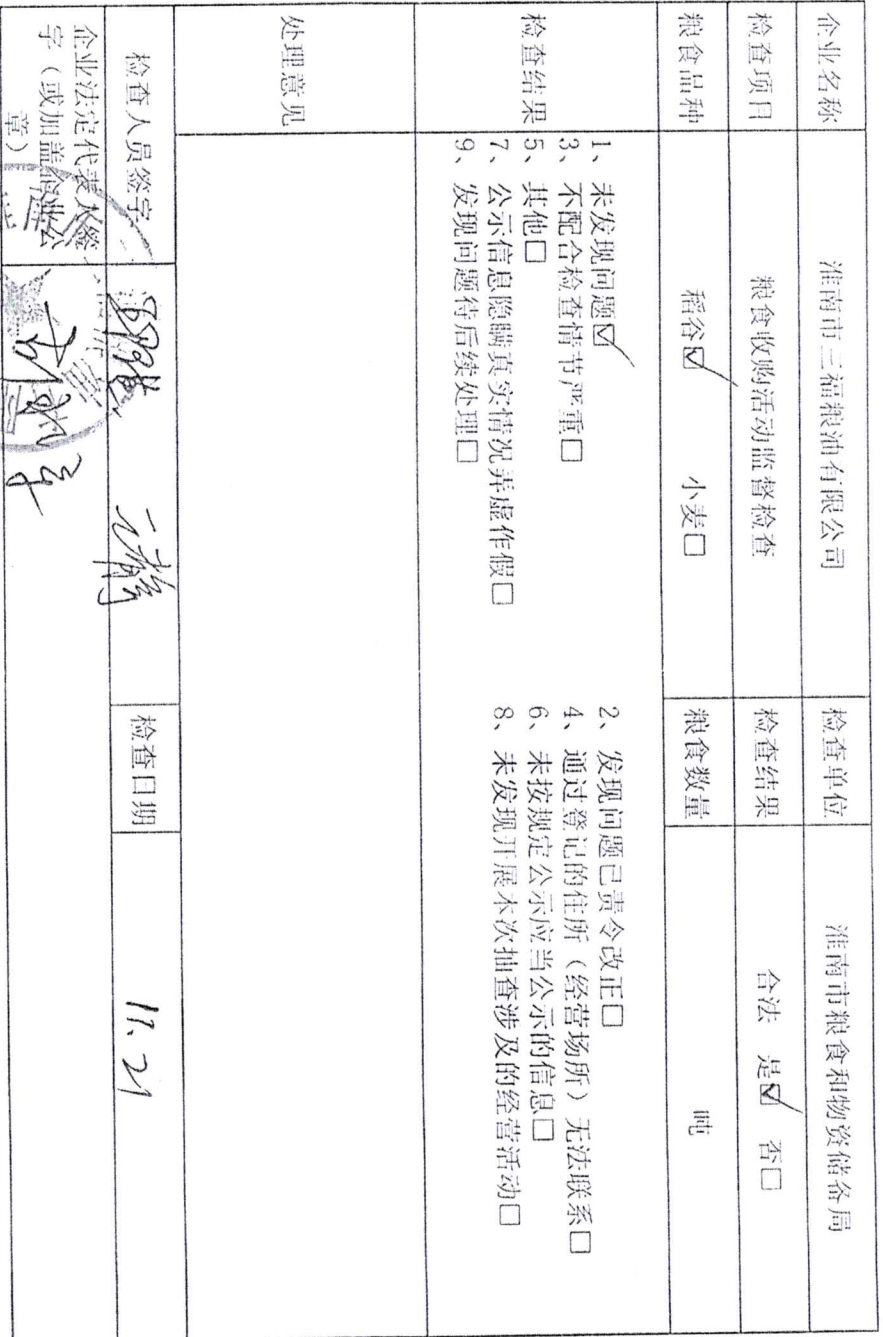 企业名称 淮南市三福粮油有限公司 检查单位 淮南市粮食和物资储备局
检查项目 粮食收购活动监督检查 检查结果 合法 是☑ 否□
粮食品种 稻谷☑ 小麦□ 粮食数量 吨
检查结果
1、未发现问题☑ 2、发现问题已责令改正□
3、不配合检查情节严重□ 4、通过登记的住所（经营场所）无法联系□
5、其他□ 6、未按规定公示应当公示的信息□
7、公示信息隐瞒真实情况弄虚作假□ 8、未发现开展本次抽查涉及的经营活动□
9、发现问题待后续处理□
处理意见
检查人员签字 检查日期 11.21
企业法定代表人签
字（或加盖企业公
章）